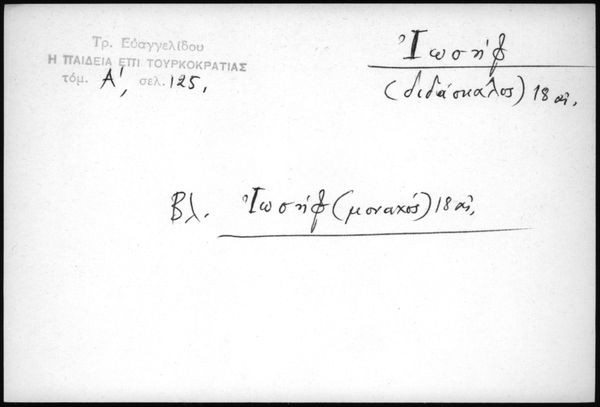 Τρ. Εὐαγγελίδου
Η ΠΑΙΔΕΙΑ ΕΠΙ ΤΟΥΡΚΟΚΡΑΤΙΑΣ
τόμ. Α΄, σελ. 125,
Ἰωσήφ
(διδάσκαλος) 18 αἰ.
Βλ. Ἰωσήφ (μοναχός) 18 αἰ.